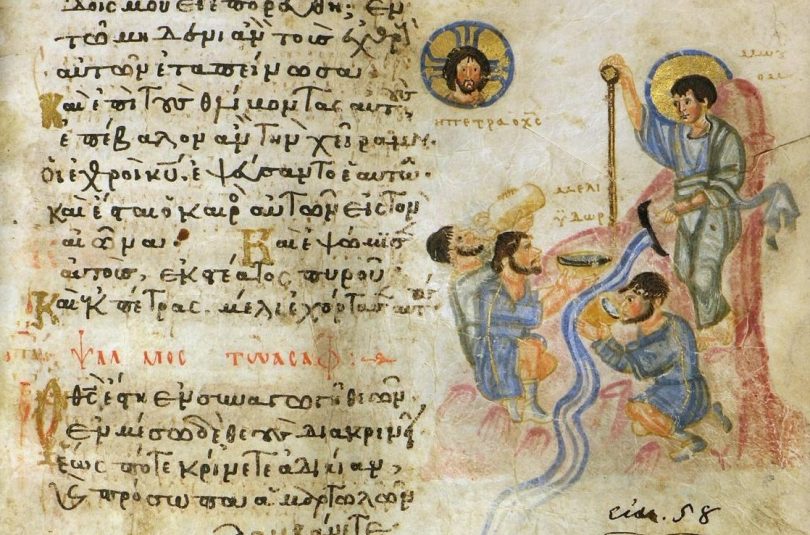 δοῖς μου εἰ ἐπορεύθη; Ἐν
τῶ μηδενὶ ἂν τοὺς ἐχθροὺς
αὐτῶν ἐταπείνωσα
Καὶ ἐπὶ τοὺς θλίβοντας αὐτοὺς
ἐπέβαλον ἂν τὴν χεῖρά μου.
οἱ ἐχθροὶ κυ ἐψεύσαντο αὐτῶ.
καὶ ἔσται ὁ καιρὸς αὐτῶν εἰς τὸν
αἰῶνα. Καὶ ἐψώμισεν
αὐτοὺς, ἐκ στέατος πυροῦ
Καὶ ἐκ πέτρας μέλι ἐχόρτασεν αὐτούς
ΨΑΛΜΟΣ ΤΩ ΑΣΑΦ:
Ὁ θς ἔστη ἐν συναγωγῆ θεῶν.
ἐν μέσω δὲ θεοὺς διακρινεῖ
ἕως πότε κρίνετε ἀδικίαν,
καὶ πρόσωπα ἁμαρτωλῶν
λαμβάνετε
ἡ πέτρα ὁ χς
μέλι
ὕδωρ
εἰκ. 58